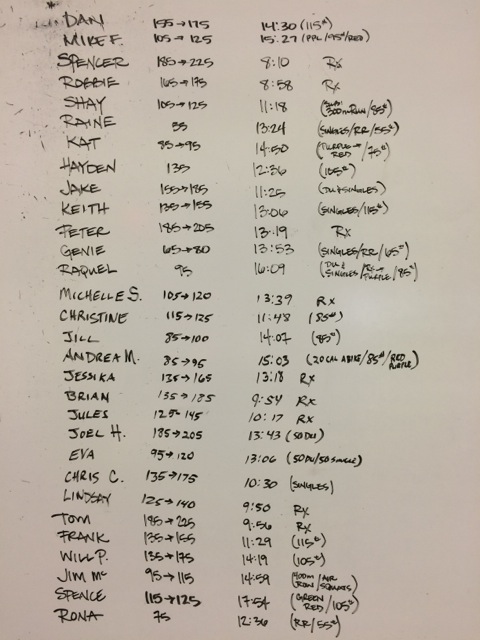 DAN 155→175 14:30 (115#)
MIKE F. 105→125 15:27 (PPL/95#/RED)
SPENCER 185→225 8:10 Rx
ROBBIE 165→175 8:58 Rx
SHAY 105→125 11:18 (300m Run/85#)
RAINE 55 13:24 (SINGLES/RR/55#)
KAT 85→95 14:50 (PURPLE→RED/75#)
HAYDEN 135 12:36 (105#)
JAKE 155→185 11:25 (DU & SINGLES)
KEITH 135→155 13:06 (SINGLES/115#)
PETER 185→205 13:19 Rx
GENIE 65→80 13:53 (SINGLES/RR/65#)
RAQUEL 95 16:09 (DU & SINGLES/RX→PURPLE/85#)
MICHELLE S. 105→120 13:39 Rx
CHRISTINE 115→125 11:48 (85#)
JILL 85→100 14:07 (85#)
ANDREA M. 85→95 15:03 (20 CAL ABIKE/85#/RED PURPLE)
JESSIKA 135→165 13:18 Rx
BRIAN 135→185 9:54 Rx
JULES 125→145 10:17 Rx
JOEL H. 185→205 13:43 (50 DU)
EVA 95→120 13:06 (50 DU/50 SINGLE)
CHRIS C. 135→175 10:30 (SINGLES)
LINDSAY 125→140 9:50 Rx
TOM 185→225 9:56 Rx
FRANK 135→155 11:29 (115#)
WILL P. 135→175 14:19 (105#)
JIM MC 95→115 14:59 (400m ROW/AIR SQUATS)
SPENCE 115→125 17:54 (GREEN RED/105#)
RONA 75 12:36 (RR/55#)